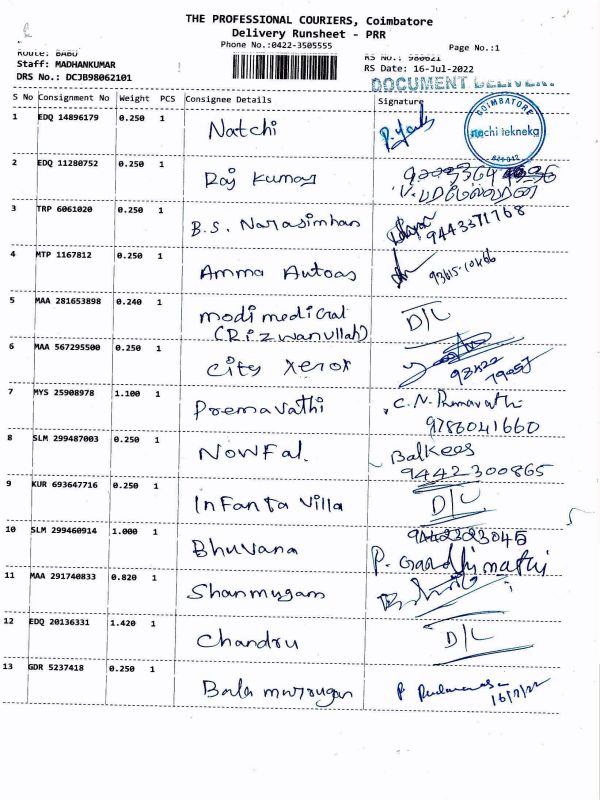 THE PROFESSIONAL COURIERS, Coimbatore
Delivery Runsheet - PRR
Phone No.:0422-3505555
Page No.:1
Route: BABU
RS No.: 980621
Staff: MADHANKUMAR
RS Date: 16-Jul-2022
DRS No.: DCJB98062101
DOCUMENT DELIVER
S No Consignment No Weight PCS Consignee Details Signature
COIMBATORE
nachi tekneka
641 012
1 EDQ 14896179 0.250 1 Natchi
2 EDQ 11280752 0.250 1 Raj Kumar
3 TRP 6061020 0.250 1 B.S. Narasimhan 9443371768
4 MTP 1167812 0.250 1 Amma Autoas
5 MAA 281653898 0.240 1 modi medical D/L
(Rizwanullah)
6 MAA 567295500 0.250 1 City xerox
7 MYS 25908978 1.100 1 Premavathi C.N. Premavathi
9786041660
8 SLM 299487003 0.250 1 NowFal. Balkees
9442300865
9 KUR 693647716 0.250 1 Infanta Villa D/L
10 SLM 299460914 1.000 1 Bhuvana P. Gandhimathi
11 MAA 291740833 0.820 1 Shanmugam
12 EDQ 20136331 1.420 1 Chandru D/L
13 GDR 5237418 0.250 1 Bala murrugan 16/7/22